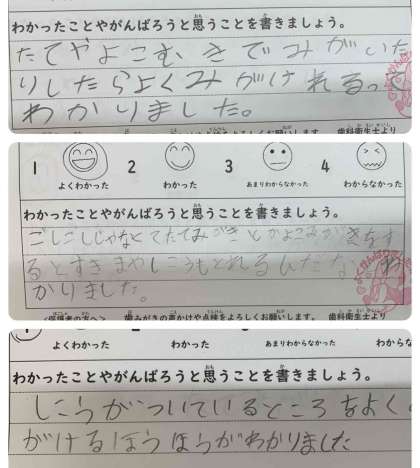 わかったことやがんばろうと思うことを書きましょう。
たてやよこむきでみがいた
りしたらよくみがけれるって
わかりました。
歯科衛生士より
1 2 3 4
よくわかった わかった あまりわからなかった わからなかった
わかったことやがんばろうと思うことを書きましょう。
ごしごしじゃなくてたてみがきとかよこみがきをす
るとすきまやしこうもとれるんだな わ
かりました。
<保護者の方へ> 歯みがきの声かけや点検をよろしくお願いします。 歯科衛生士より
よくわかった わかった あまりわからなかった わからな
わかったことやがんばろうと思うことを書きましょう。
しこうがついているところをよく
がけるほうほうがわかりました